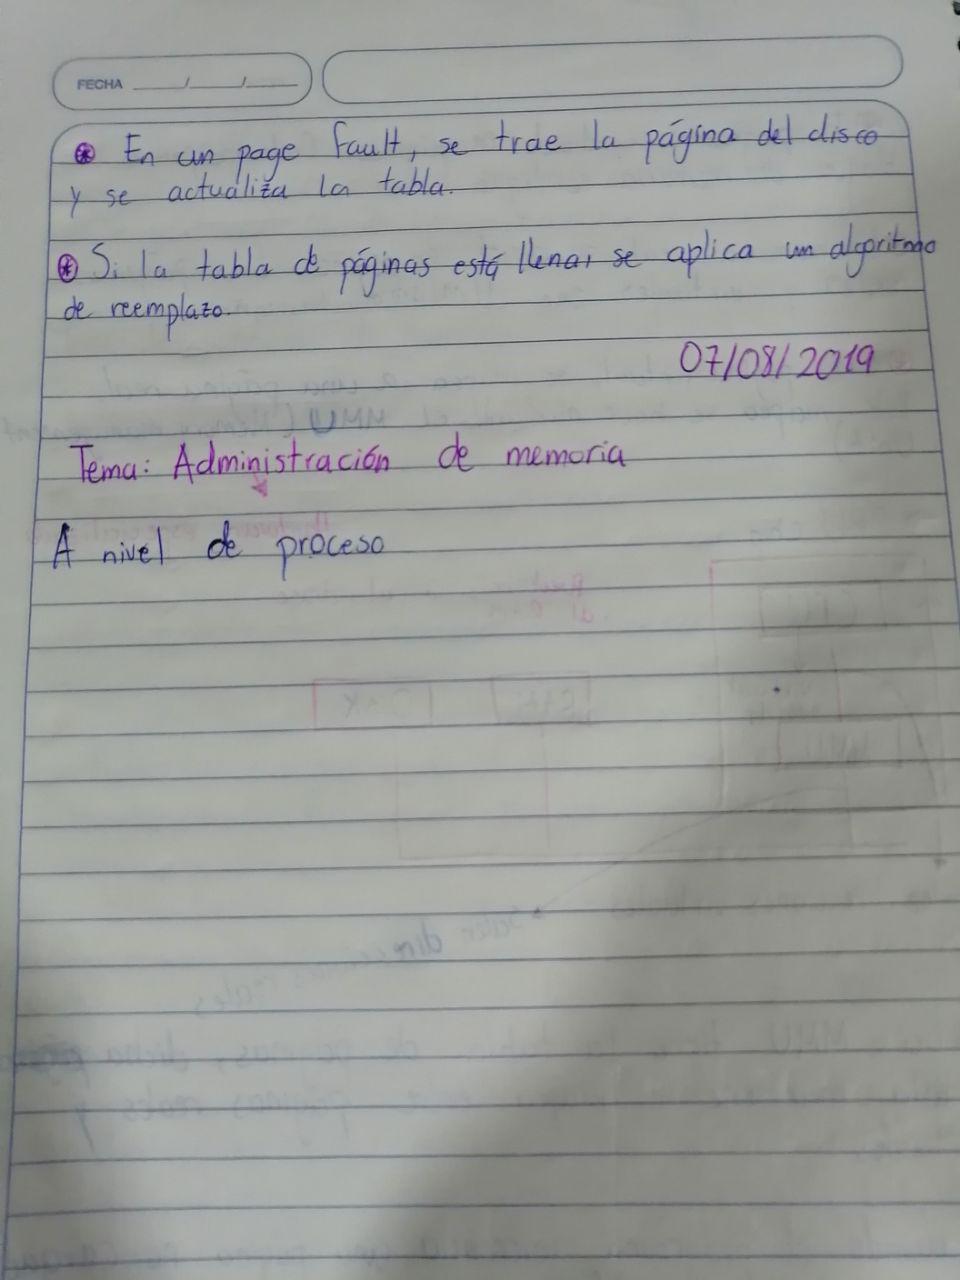 FECHA ___/___/___
⊛ En un page fault, se trae la página del disco
y se actualiza la tabla.
⊛ Si la tabla de páginas está llena, se aplica un algoritmo
de reemplazo.
07/08/2019
Tema: Administración de memoria
A nivel de proceso